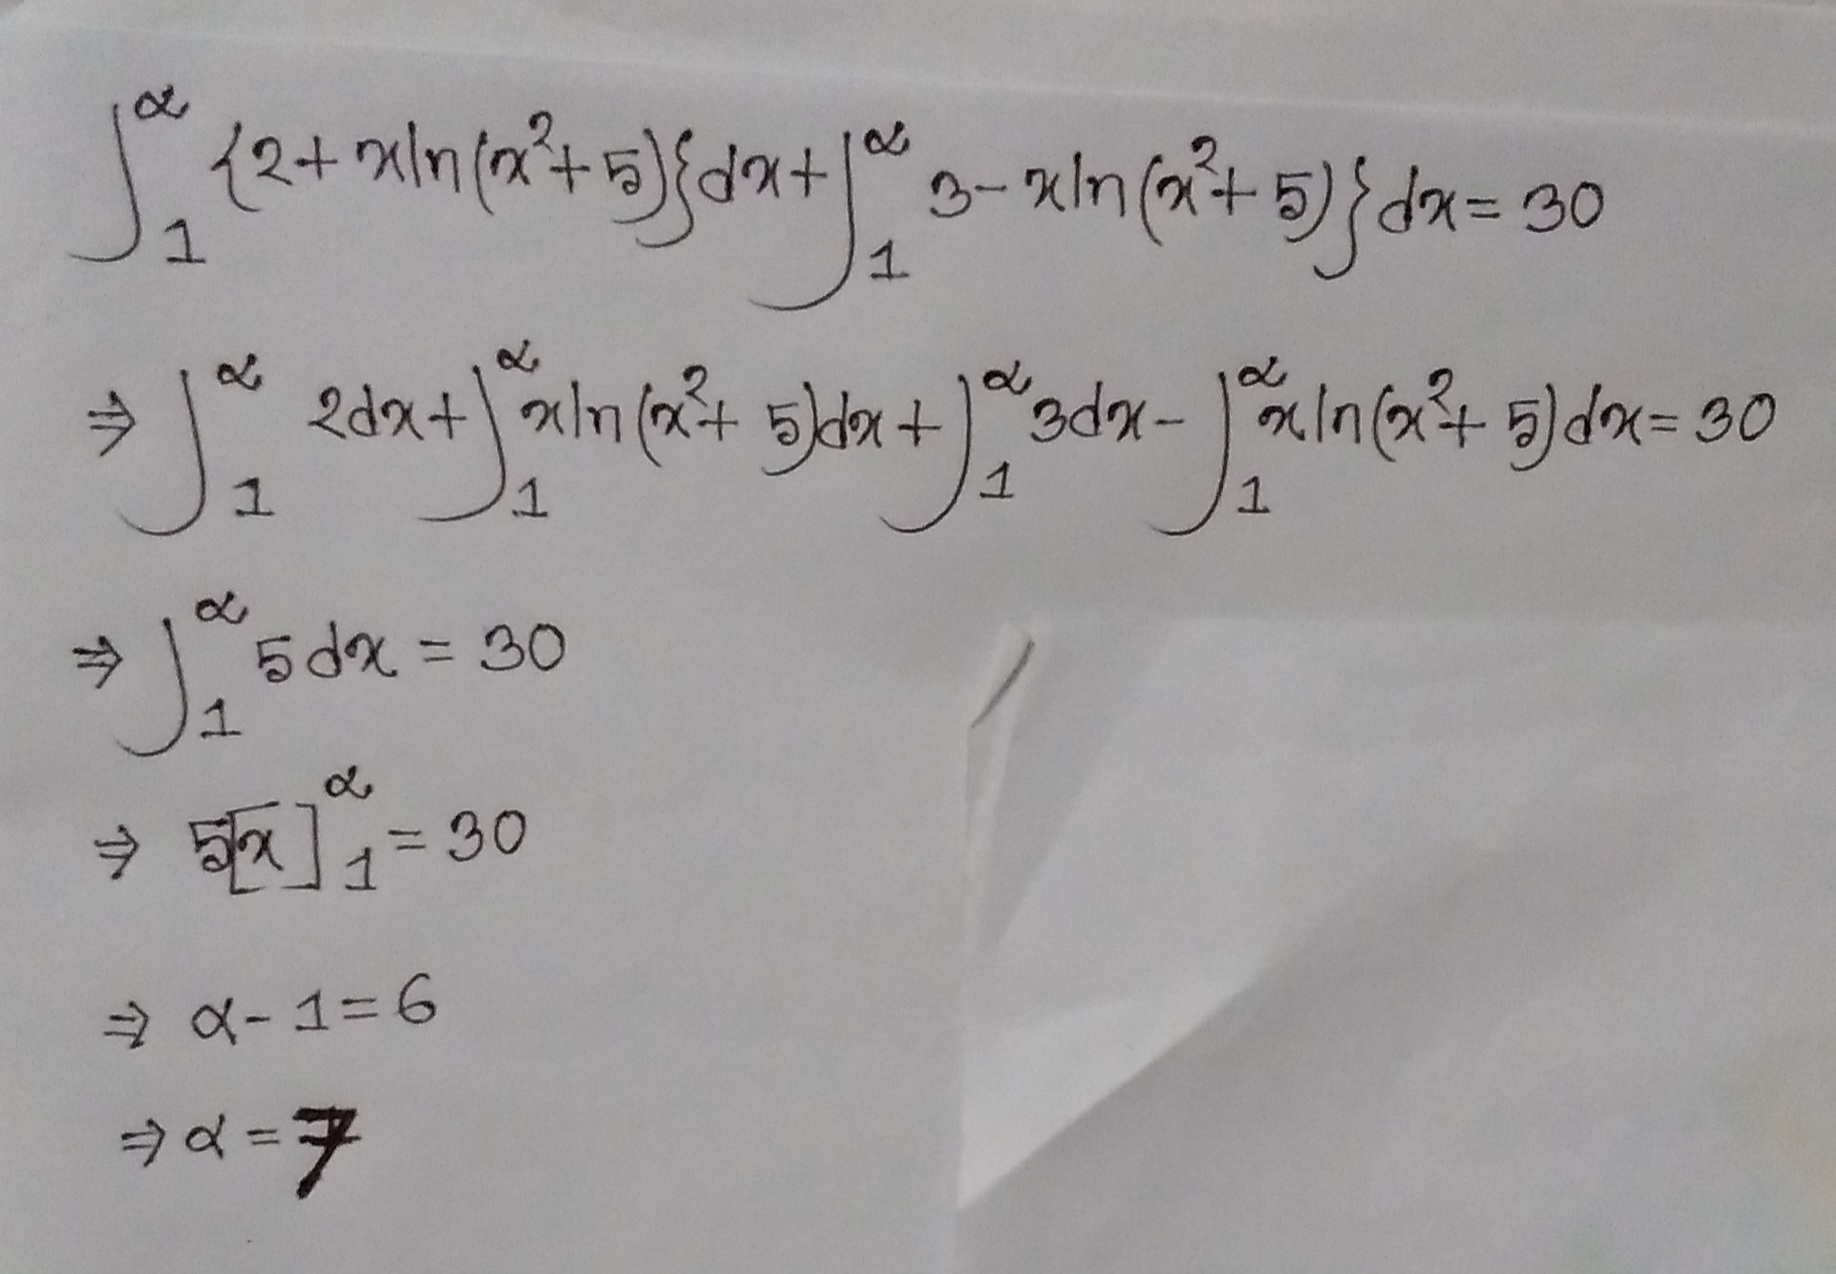 ∫₁^α {2+xln(x²+5)}dx+∫₁^α 3-xln(x²+5)}dx=30
⇒ ∫₁^α 2dx+∫₁^α xln(x²+5)dx+∫₁^α 3dx-∫₁^α xln(x²+5)dx=30
⇒ ∫₁^α 5dx=30
⇒ 5[x]₁^α=30
⇒ α-1=6
⇒ α=7